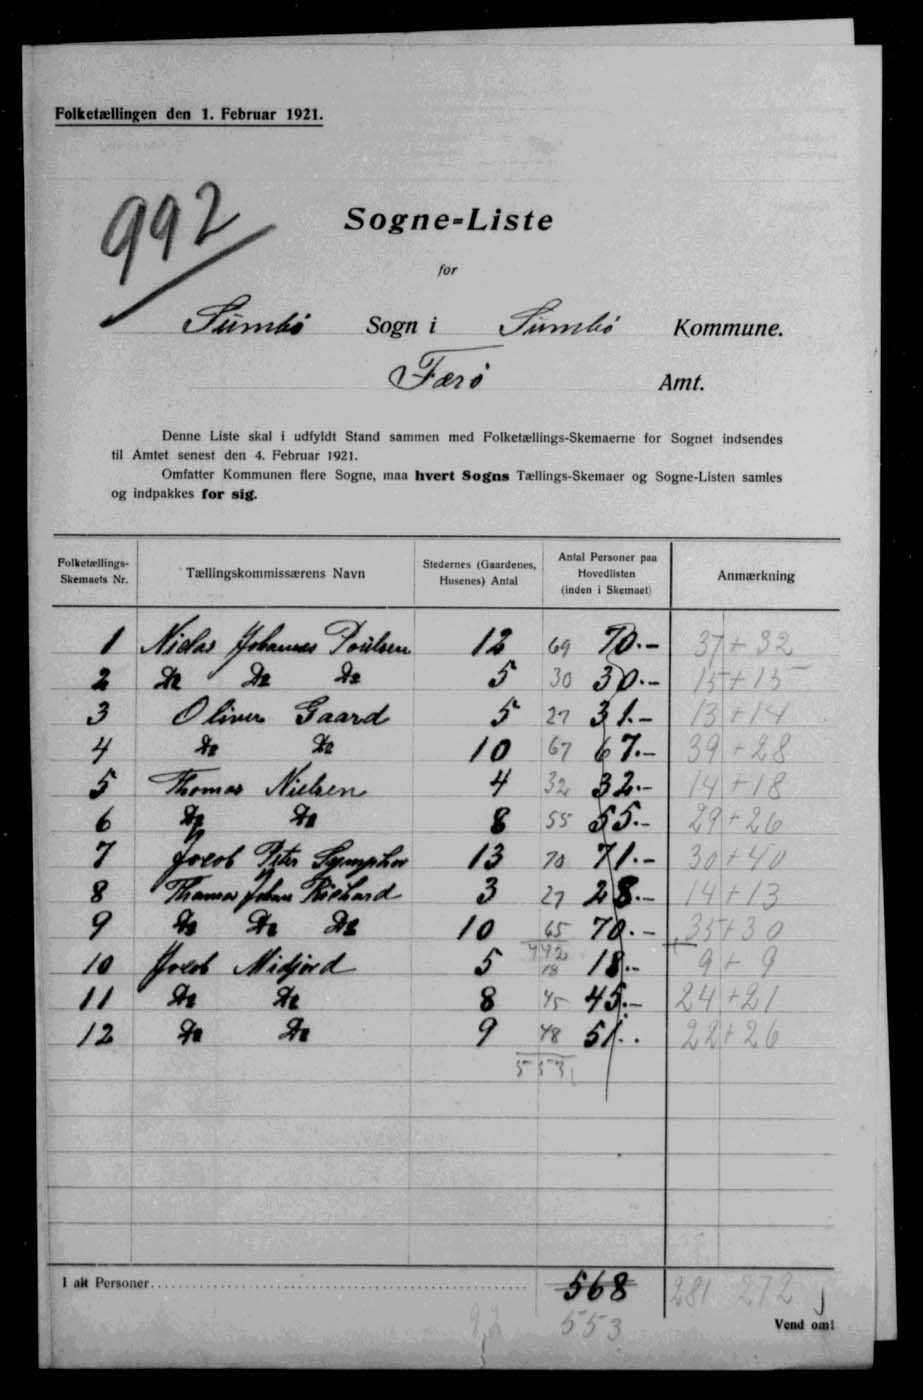 Folketællingen den 1. Februar 1921.
992
Sogne-Liste
for
Sumbø Sogn i Sumbø Kommune.
Færø Amt.
Denne Liste skal i udfyldt Stand sammen med Folketællings-Skemaerne for Sognet indsendes
til Amtet senest den 4. Februar 1921.
Omfatter Kommunen flere Sogne, maa hvert Sogns Tællings-Skemaer og Sogne-Listen samles
og indpakkes for sig.
Folketællings-Skemaets Nr. Tællingskommissærens Navn Stedernes (Gaardenes, Husenes) Antal Antal Personer paa Hovedlisten (inden i Skemaet) Anmærkning
1 Niclas Johannes Poulsen 12 69 70.- 37 + 32
2 Do Do Do 5 30 30.- 15 + 15
3 Oliver Gaard 5 27 31.- 13 + 14
4 Do Do 10 67 67.- 39 + 28
5 Thomas Nielsen 4 32 32.- 14 + 18
6 Do Do 8 55 55.- 29 + 26
7 Jocob Peter 13 70 71.- 30 + 40
8 Thomas Johan Richard 3 27 28.- 14 + 13
9 Do Do Do 10 65 70.- 35 + 30
442
10 Jocob Midjord 5 18 18.- 9 + 9
11 Do Do 8 45 45.- 24 + 21
12 Do Do 9 48 51.. 22 + 26
553
I alt Personer 568 281 272
92 553
Vend om!